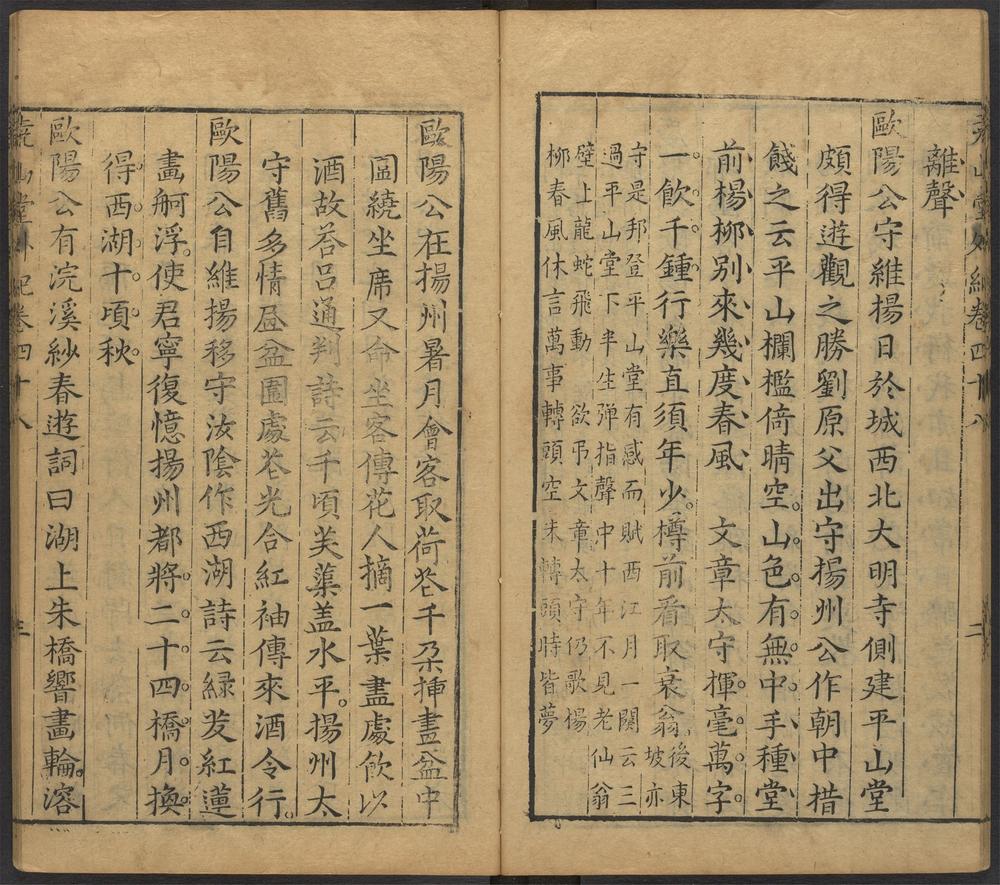 堯山堂外紀卷四十八
二
離聲
歐陽公守維揚日於城西北大明寺側建平山堂
頗得遊觀之勝劉原父出守揚州公作朝中措
餞之云平山欄檻倚晴空。山色有無中手種堂
前楊柳別來幾度春風　文章太守揮毫萬字
一飲千鍾行樂直須年少樽前看取衰翁後東
坡亦
守是邦登平山堂有感而賦西江月一闋云三
過平山堂下半生彈指聲中十年不見老仙翁
壁上龍蛇飛動　欲弔文章太守仍歌楊
柳春風休言萬事轉頭空未轉頭時皆夢
歐陽公在揚州暑月會客取荷花千朵插畫盆中
圍繞坐席又命坐客傳花人摘一葉盡處飲以
酒故荅呂通判詩云千頃芙蕖盖水平。揚州太
守舊多情畫盆圍處花光合紅袖傳來酒令行。
歐陽公自維揚移守汝陰作西湖詩云綠芰紅蓮
畫舸浮。使君寧復憶揚州都將二十四橋月。換
得西湖十頃秋
歐陽公有浣溪紗春遊詞曰湖上朱橋響畫輪。溶
堯山堂外紀卷四十八